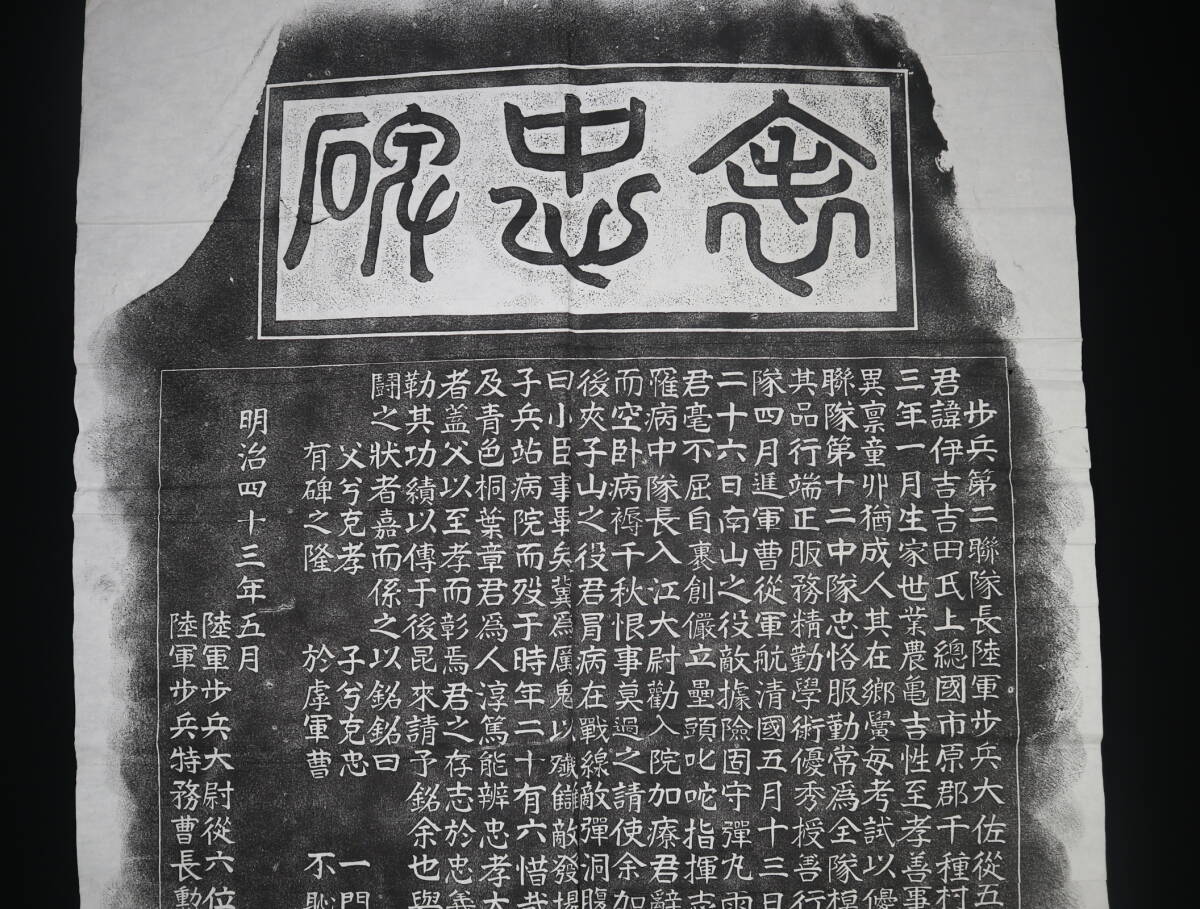 忠碑
步兵第二聯隊長陸軍步兵大佐從五
君諱伊吉吉田氏上總國市原郡千種村
三年一月生家世業農亀吉性至孝善事
異禀童丱猶成人其在鄉黌每考試以優
聯隊第十二中隊忠恪服勤常爲全隊模
其品行端正服務精勤學術優秀授善行
隊四月進軍曹從軍航清國五月十三日
二十六日南山之役敵據險固守彈丸雨
君毫不屈自裹創儼立壘頭叱咤指揮志
罹病中隊長入江大尉勸入院加療君辭
而空卧病褥千秋恨事莫過之請使余加
後夾子山之役君冒病在戰線敵彈洞腹
曰小臣事畢矣冀爲厲鬼以殲讎敵發場
子兵站病院而歿于時年二十有六惜哉
及青色桐葉章君爲人淳篤能辨忠孝大
者蓋父以至孝而彰焉君之存志於忠義
勒其功績以傳于後昆來請予銘余也與
鬪之狀者嘉而係之以銘銘曰
父兮克孝 子兮克忠 一門
有碑之隆 於虖軍曹 不恥
明治四十三年五月
陸軍步兵大尉從六位
陸軍步兵特務曹長勳